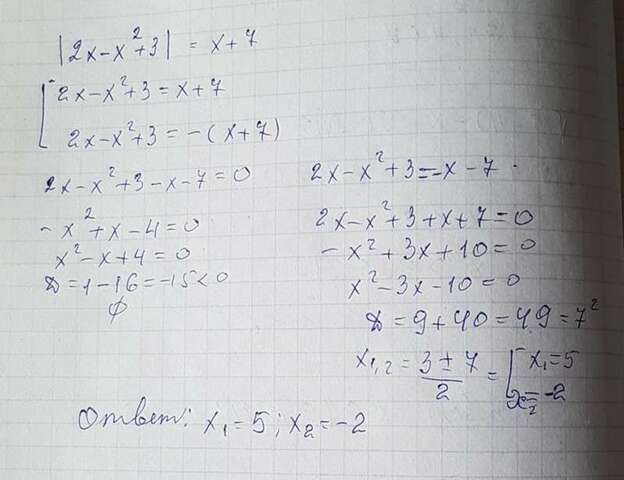 |2x-x²+3| = x+7
[ 2x-x²+3 = x+7
2x-x²+3 = -(x+7)
2x-x²+3-x-7=0
-x²+x-4=0
x²-x+4=0
D=1-16=-15<0
∅
2x-x²+3=-x-7.
2x-x²+3+x+7=0
-x²+3x+10=0
x²-3x-10=0
D=9+40=49=7²
x₁,₂ = (3±7)/2 = [ x₁=5
x₂=-2
Ответ: x₁=5; x₂=-2